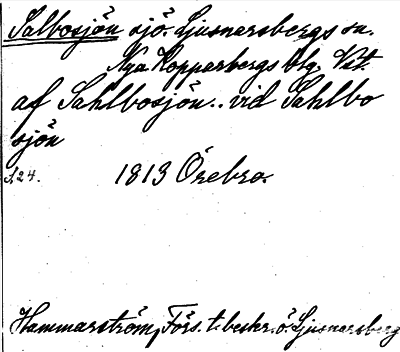 Salbosjön sjö. Ljusnarsbergs sn.
Nya Kopparbergs blg. Vst.
af Sahlbosjön.. vid Sahlbo
sjön
S. 24. 1813 Örebro.
Hammarström, Förs. t. beskr. ö. Ljusnarsberg